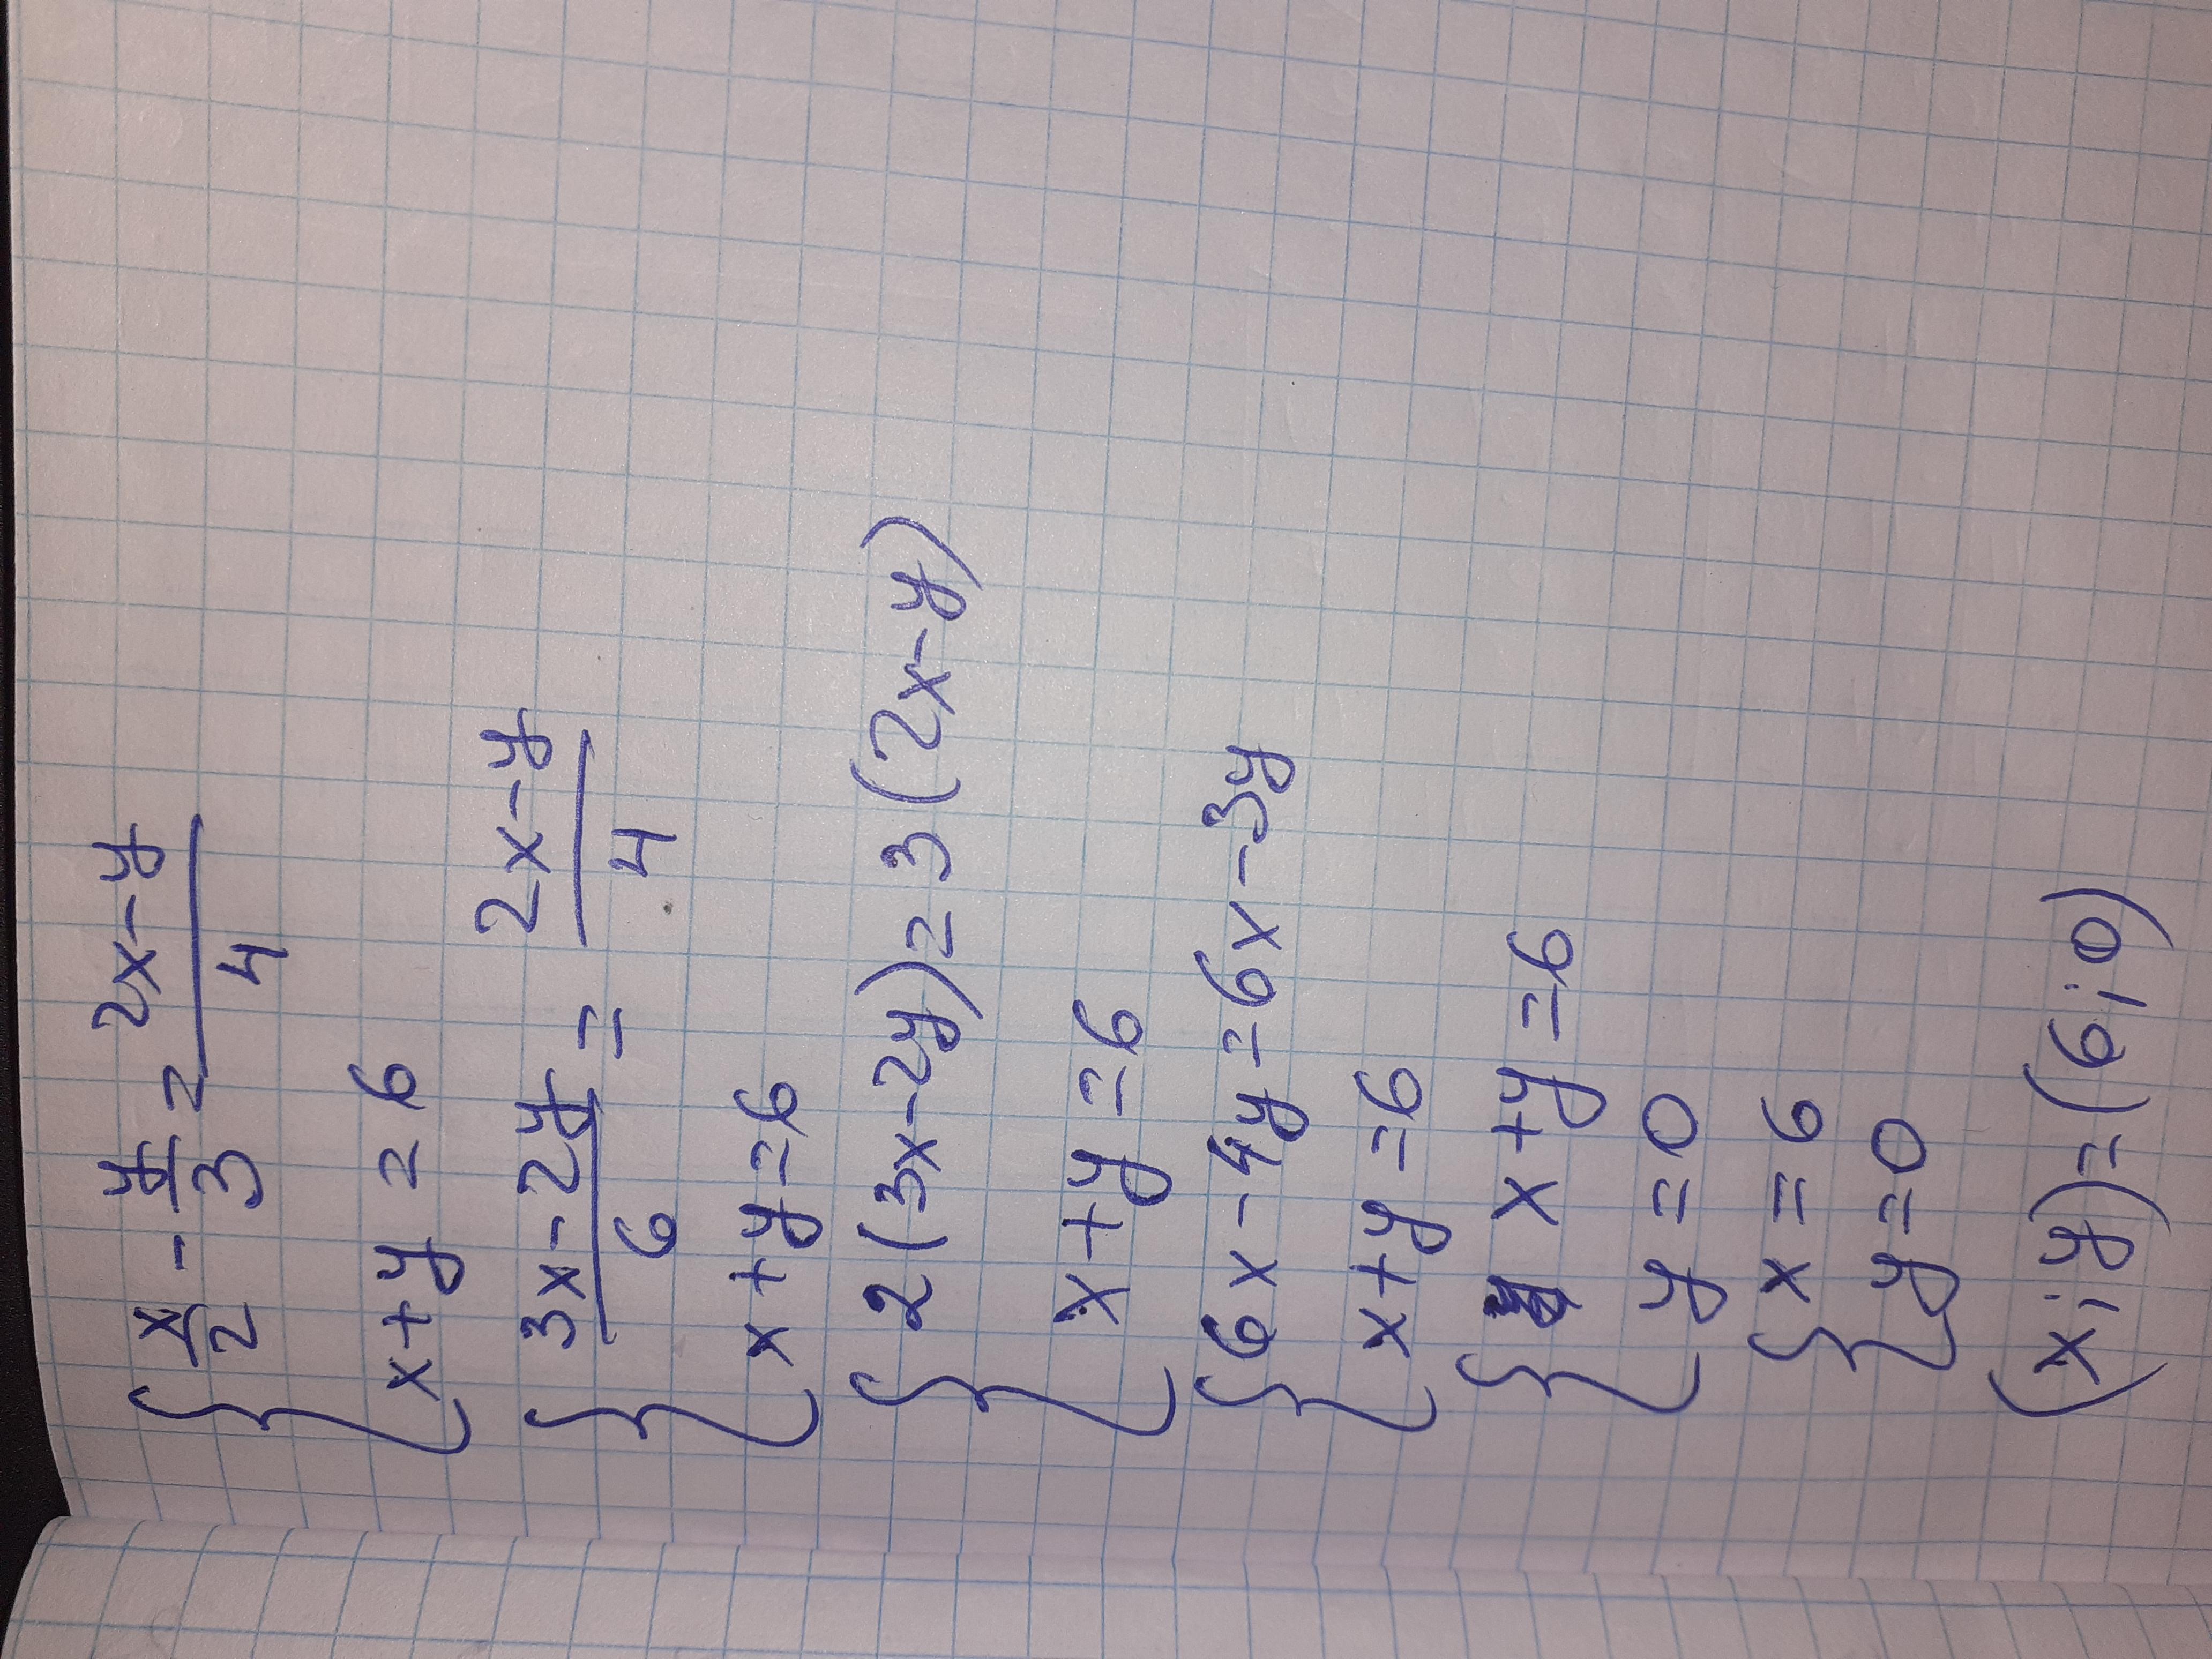 { x/2 - y/3 = 2x-y/4
x+y = 6
{ 3x-2y/6 = 2x-y/4
x+y=6
{ 2(3x-2y)=3(2x-y)
x+y=6
{ 6x-4y=6x-3y
x+y=6
{ x+y=6
y=0
{ x=6
y=0
(x;y)=(6;0)